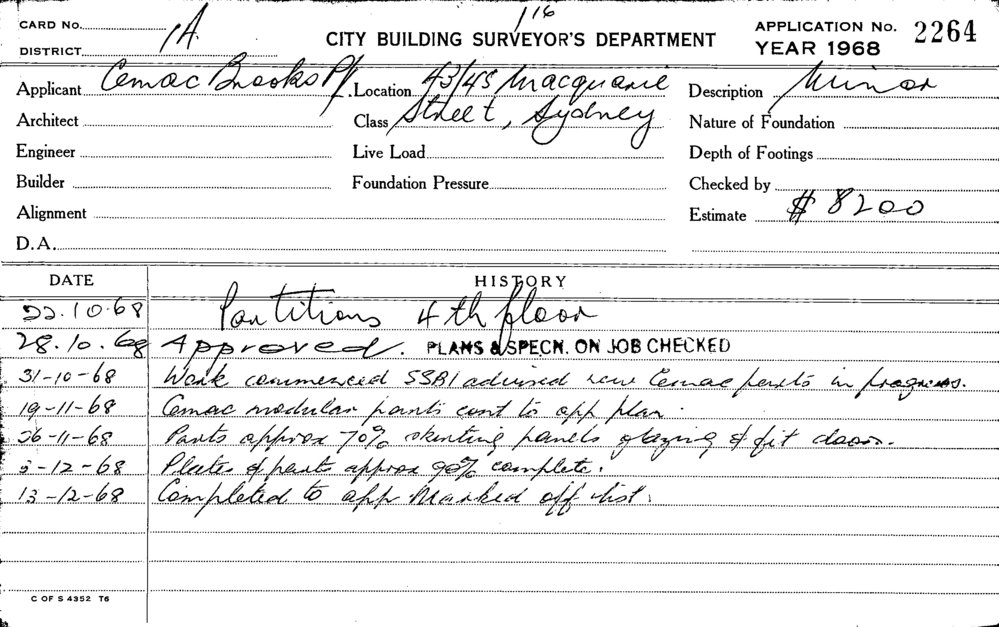 116
CARD No. 1A
DISTRICT
CITY BUILDING SURVEYOR'S DEPARTMENT
APPLICATION No. 2264
YEAR 1968
Applicant Cemac Brooks P/L. Location 43/45 Macquarie Description Minor
Architect Class Street, Sydney Nature of Foundation
Engineer Live Load Depth of Footings
Builder Foundation Pressure Checked by
Alignment Estimate $8200
D.A.
DATE HISTORY
22.10.68 Partitions 4th floor
28.10.68 Approved. PLANS & SPECN. ON JOB CHECKED
31-10-68 Work commenced SSBI advised new Cemac parts in progress.
19-11-68 Cemac modular parts const to app plan.
26-11-68 Parts approx 70% skirting panels glazing & fit doors.
-12-68 Plates of parts approx 90% complete.
13-12-68 Completed to app Marked off list.
C OF S 4352 T6